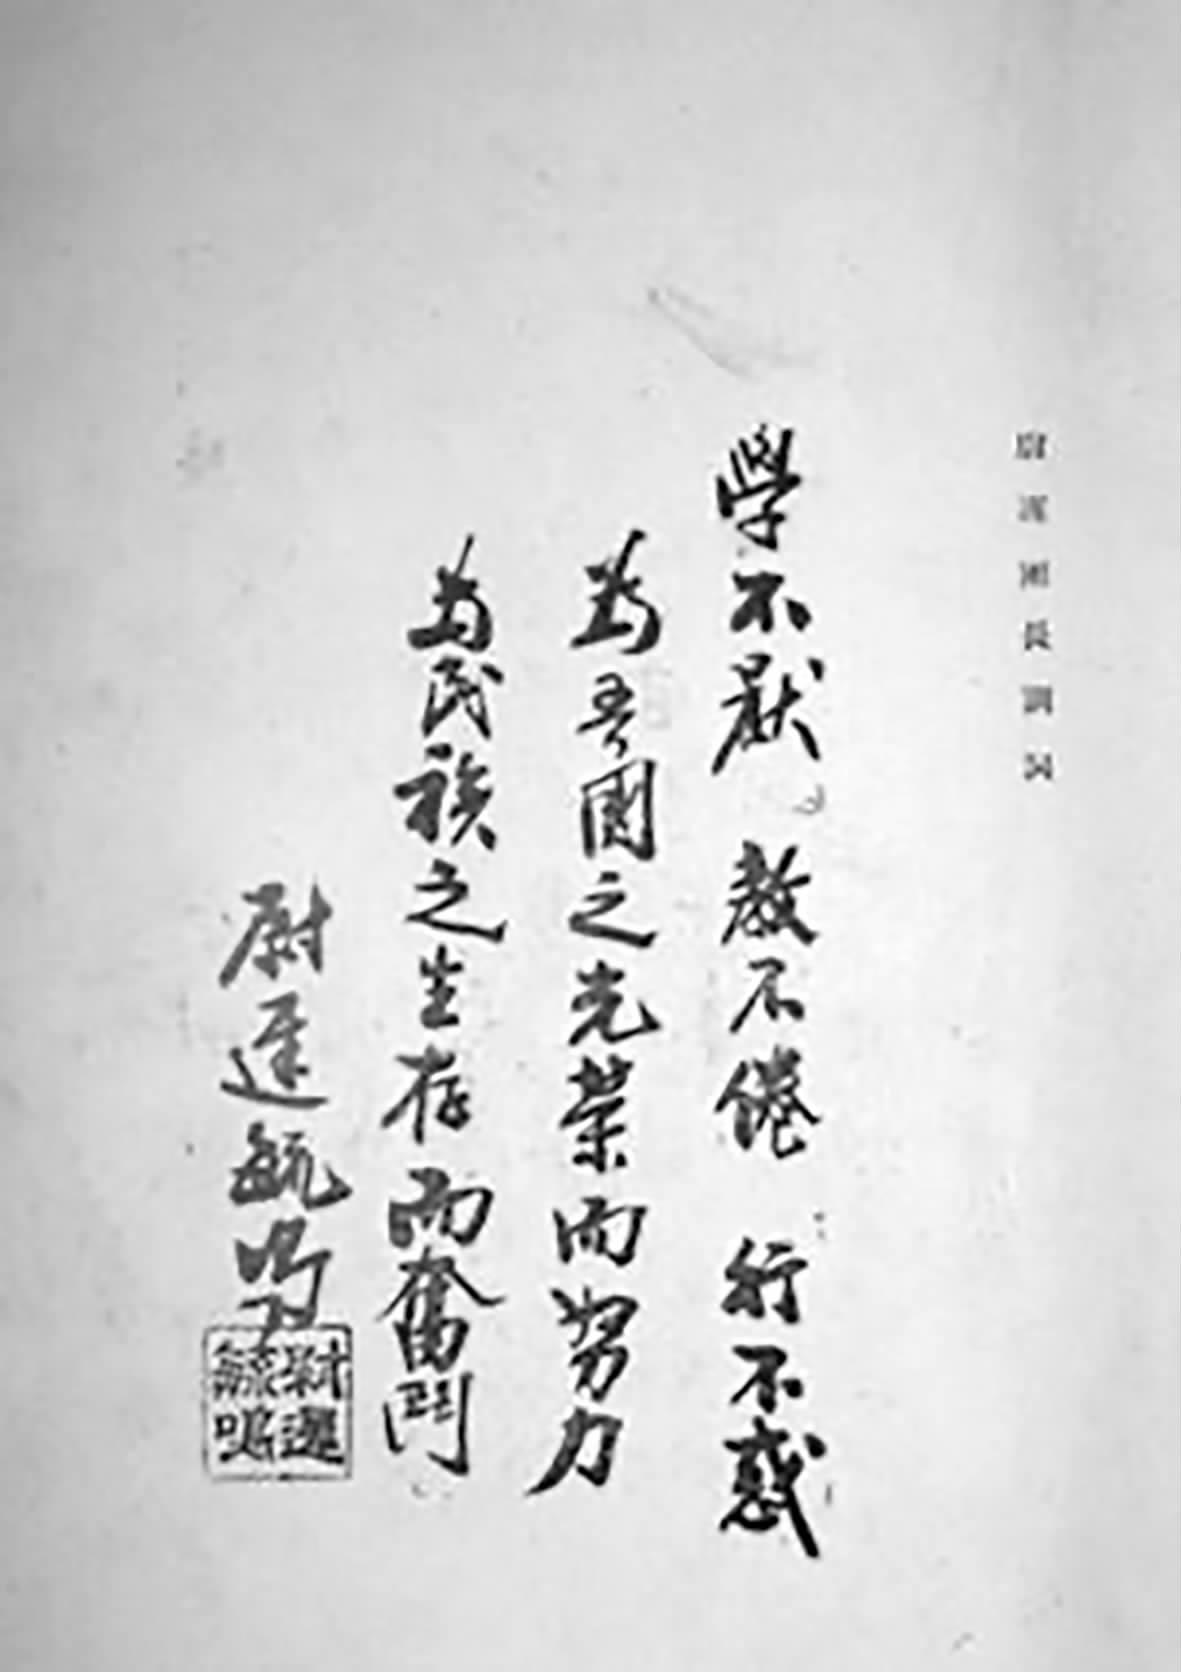 尉遲團長訓詞
學不厭 教不倦 行不惑
為吾團之光榮而努力
為民族之生存而奮鬥
尉遲毓鳴
尉遲
毓鳴